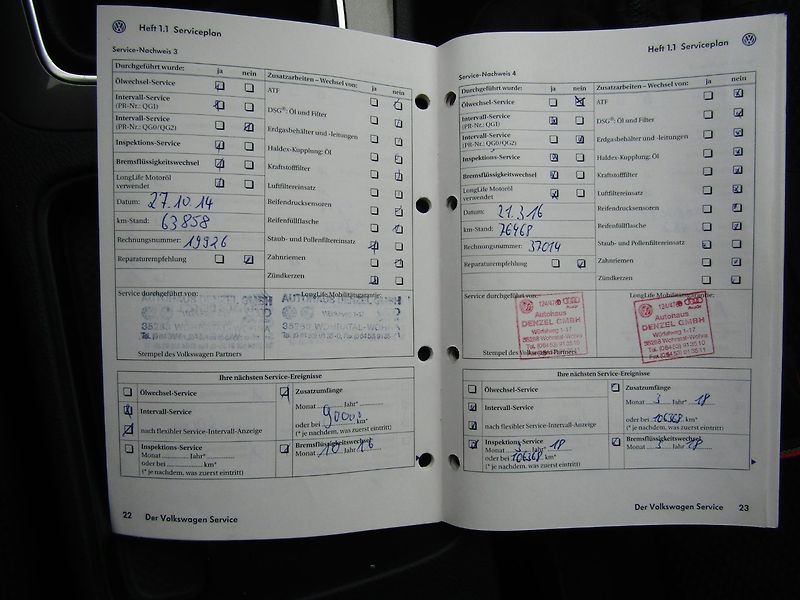 Heft 1.1 Serviceplan
Service-Nachweis 3
Durchgeführt wurde: ja nein
Ölwechsel-Service
Intervall-Service
(PR-Nr.: QG1)
Intervall-Service
(PR-Nr.: QG0/QG2)
Inspektions-Service
Bremsflüssigkeitswechsel
LongLife Motoröl
verwendet
Datum: 27.10.14
km-Stand: 63858
Rechnungsnummer: 19926
Reparaturempfehlung
Zusatzarbeiten – Wechsel von: ja nein
ATF
DSG®: Öl und Filter
Erdgasbehälter und -leitungen
Haldex-Kupplung: Öl
Kraftstofffilter
Luftfiltereinsatz
Reifendrucksensoren
Reifenfüllflasche
Staub- und Pollenfiltereinsatz
Zahnriemen
Zündkerzen
Service durchgeführt von:
LongLife Mobilitätsgarantie:
AUTOHAUS DENZEL GMBH
35288 WOHRATAL-WOHRA
Stempel des Volkswagen Partners
Ihre nächsten Service-Ereignisse
Ölwechsel-Service
Intervall-Service
nach flexibler Service-Intervall-Anzeige
Inspektions-Service
Monat Jahr*
oder bei km*
(* je nachdem, was zuerst eintritt)
Zusatzumfänge
Monat Jahr*
oder bei 90000 km*
(* je nachdem, was zuerst eintritt)
Bremsflüssigkeitswechsel
Monat 10 Jahr 16
22 Der Volkswagen Service
Heft 1.1 Serviceplan
Service-Nachweis 4
Durchgeführt wurde: ja nein
Ölwechsel-Service
Intervall-Service
(PR-Nr.: QG1)
Intervall-Service
(PR-Nr.: QG0/QG2)
Inspektions-Service
Bremsflüssigkeitswechsel
LongLife Motoröl
verwendet
Datum: 21.3.16
km-Stand: 76468
Rechnungsnummer: 37014
Reparaturempfehlung
Zusatzarbeiten – Wechsel von: ja nein
ATF
DSG®: Öl und Filter
Erdgasbehälter und -leitungen
Haldex-Kupplung: Öl
Kraftstofffilter
Luftfiltereinsatz
Reifendrucksensoren
Reifenfüllflasche
Staub- und Pollenfiltereinsatz
Zahnriemen
Zündkerzen
Service durchgeführt von:
LongLife Mobilitätsgarantie:
Autohaus
DENZEL GMBH
35288 Wohratal-Wohra
Autohaus
DENZEL GMBH
35288 Wohratal-Wohra
Stempel des Volkswagen Partners
Ihre nächsten Service-Ereignisse
Ölwechsel-Service
Intervall-Service
nach flexibler Service-Intervall-Anzeige
Inspektions-Service
Monat 3 Jahr* 18
oder bei 106368 km*
(* je nachdem, was zuerst eintritt)
Zusatzumfänge
Monat 3 Jahr* 18
oder bei 106368 km*
(* je nachdem, was zuerst eintritt)
Bremsflüssigkeitswechsel
Monat 3 Jahr 18
Der Volkswagen Service 23